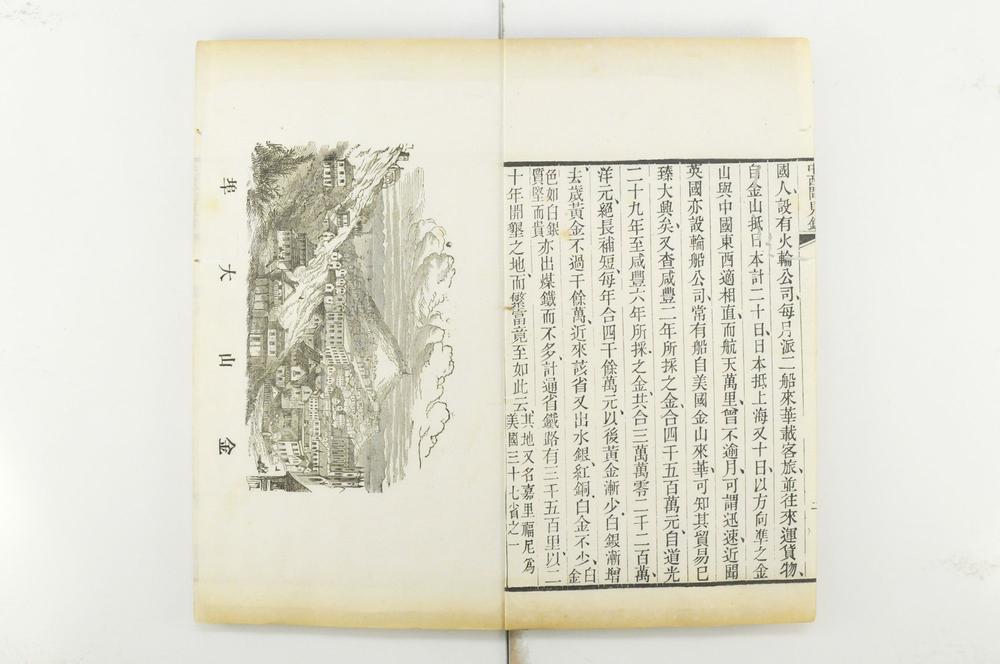 中西聞見錄
二
國人設有火輪公司、每月派二船來華載客旅、並往來運貨物、
自金山抵日本計二十日、日本抵上海又十日、以方向準之、金
山與中國東西適相直、而航天萬里曾不逾月、可謂迅速、近聞
英國亦設輪船公司、常有船自美國金山來華、可知其貿易已
臻大興矣、又查咸豐二年所採之金、合四千五百萬元、自道光
二十九年至咸豐六年所採之金、共合三萬萬零二千二百萬、
洋元、絕長補短、每年合四千餘萬元、以後黃金漸少、白銀漸增
去歲黃金不過千餘萬、近來該省又出水銀、紅銅、白金不少、白金
色如白銀質堅而貴亦出煤鐵而不多、計通省鐵路有三千五百里、以二
十年開墾之地、而繁富竟至如此云、其地又名嘉里福尼為美國三十七省之一
金山大埠